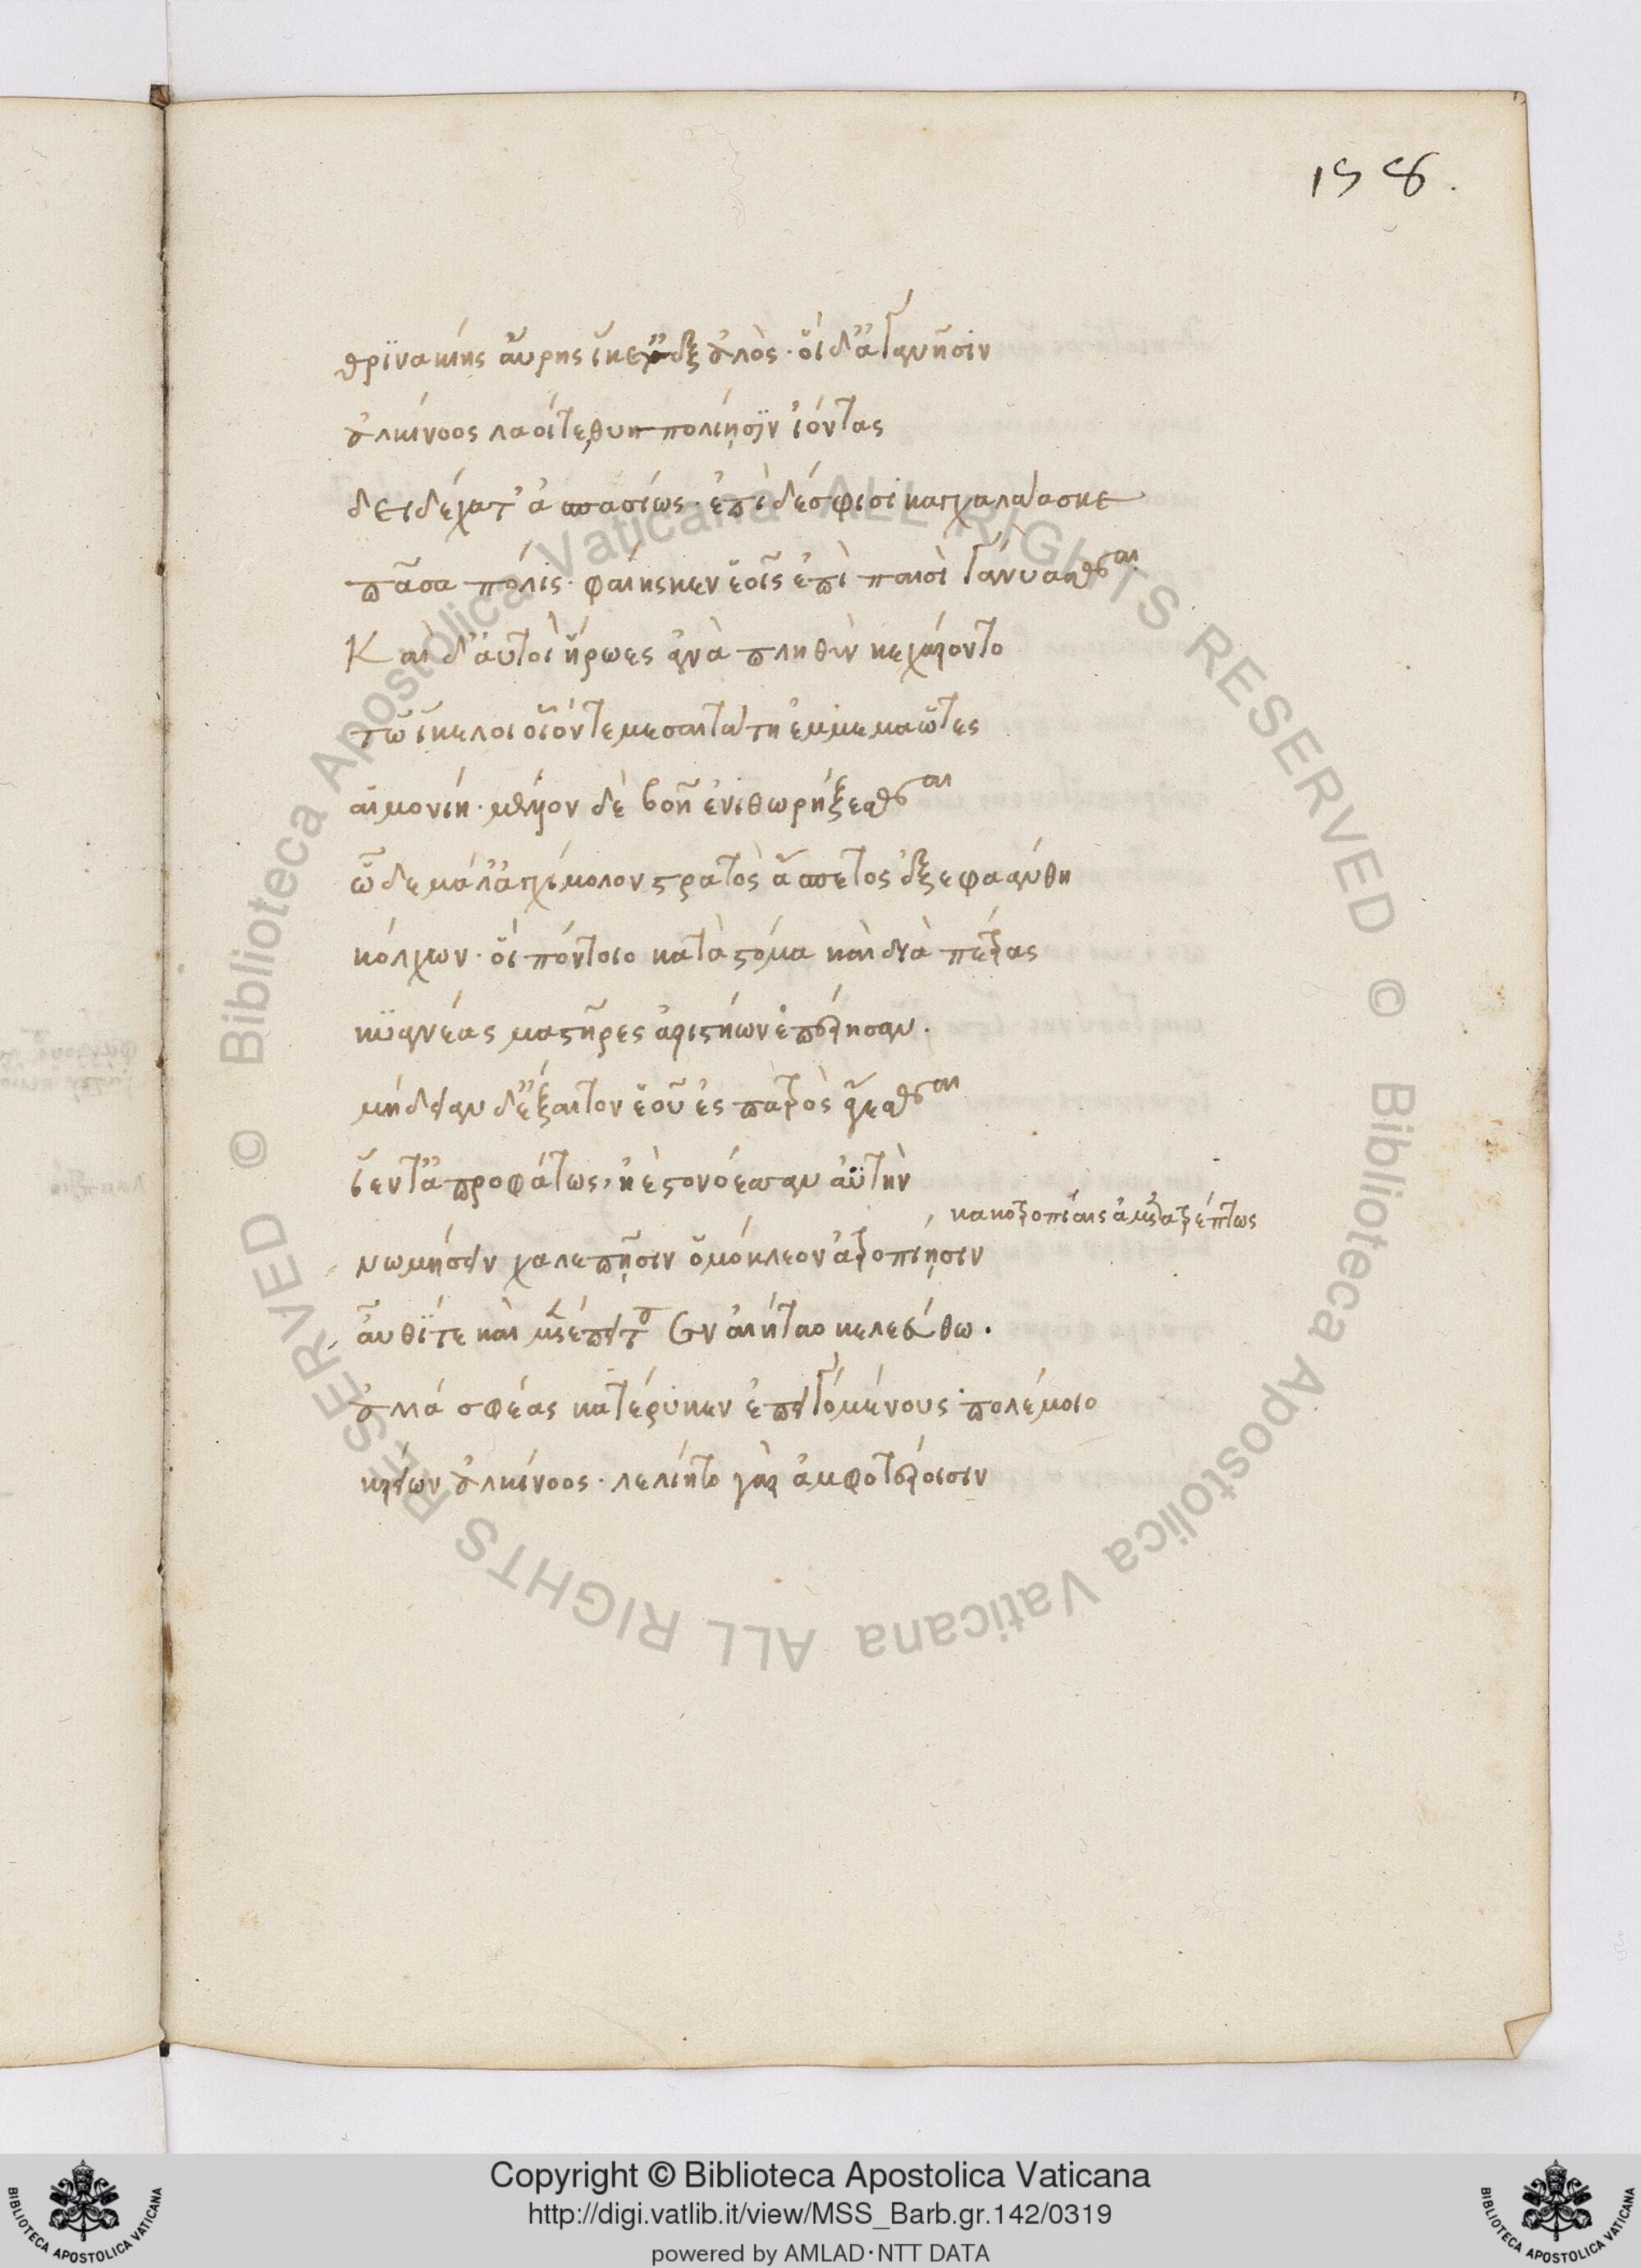 198.
θρϊνακίης αὔρης ἵκετ' ἐξ ἁλὸς· οἵ δ' ἀγανῆσιν
ἀλκίνοος λαοίτε θυηπολίῃσϊν ἰόντας
δειδέχατ' ἀσπασίως· ἐπὶ δέ σφισι καγχαλάασκε
πᾶσα πόλις· φαίης κεν ἑοῖς ἐπὶ παισὶ γάνυσθαι
Καὶ δ' αὐτοὶ ἥρωες ἀνὰ πληθὺν κεχάροντο
τῶ ἴκελοι οἷόν τε μεσαιτάτη ἐμμεμαῶτες
αἱμονίη· μέλλον δὲ βοῆ ἐνιθωρήξεσθαι
ὧδε μάλ' ἀγχίμολον στρατὸς ἄσπετος ἐξεφαάνθη
κόλχων· οἵ πόντοιο κατὰ στόμα καὶ διὰ πέτρας
κϋανέας μαστῆρες ἀριστήων ἐπέρησαν.
μήδειαν δ' ἔξαιτον ἑοῦ ἐς πατρὸς ἄγεσθαι
ἵεντ' ἀπροφάτως, ἠὲ στονόεσσαν ἀϋτὴν
κακοτροπίαις ἀμετατρέπτως
νωμήσειν χαλεπῇσιν ὁμόκλεον ἀτροπίῃσιν
αὖθϊτε καὶ μετέπειτα σὺν αἰήταο κελεύθω.
ἀλλά σφέας κατέρυκεν ἐπειγομένους πολέμοιο
κρείων ἀλκίνοος· λελίητο γὰρ ἀμφοτέροισιν
Copyright © Biblioteca Apostolica Vaticana
http://digi.vatlib.it/view/MSS_Barb.gr.142/0319
powered by AMLAD·NTT DATA